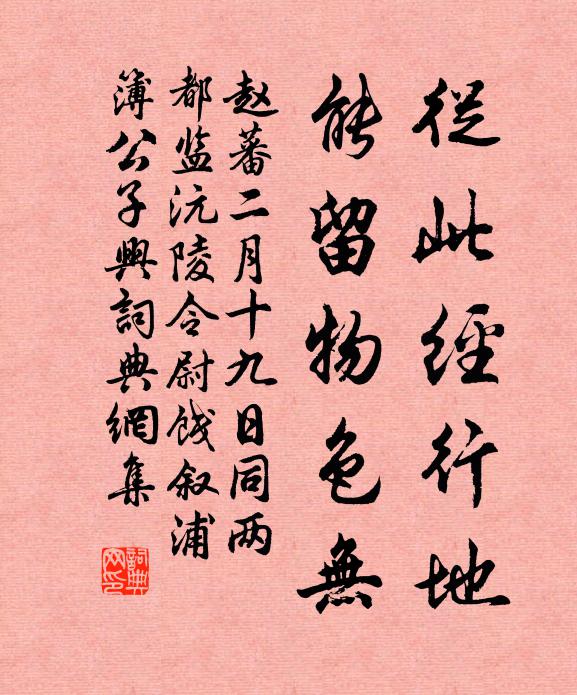 從此經行地
能留物色無
赵蕃二月十九日同两
都监沅陵令尉饯叙浦
簿公子興詞典網集
詞典网印